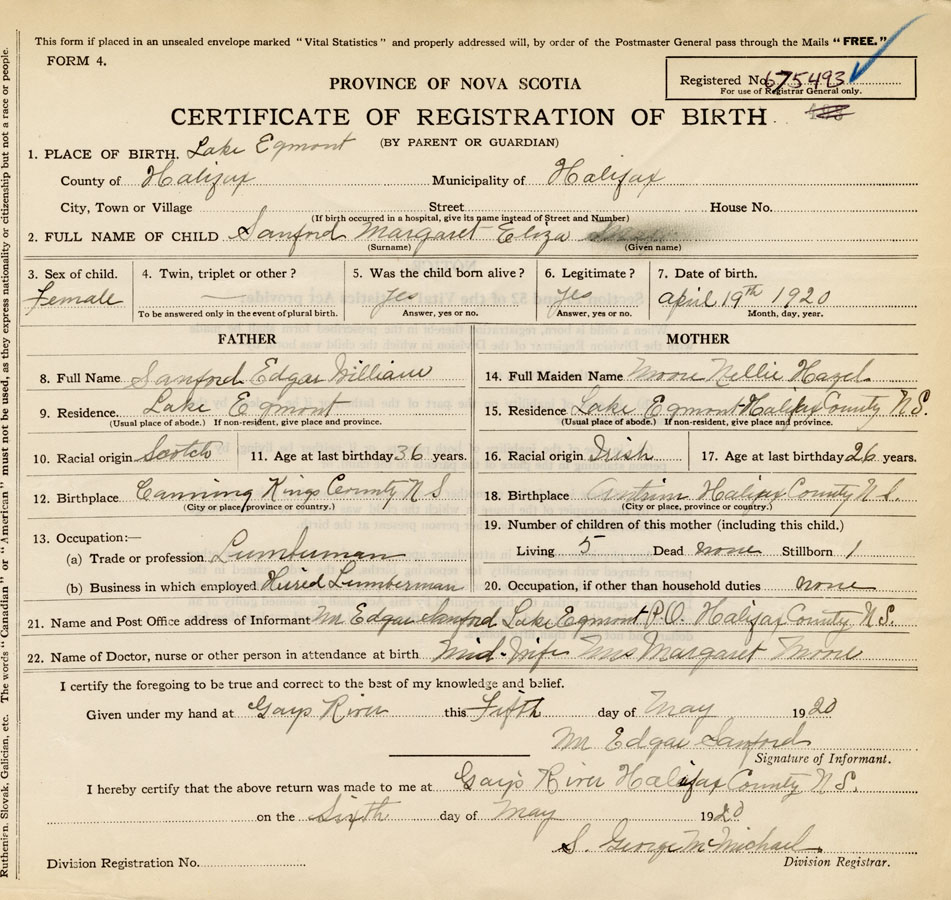 This form if placed in an unsealed envelope marked "Vital Statistics" and properly addressed will, by order of the Postmaster General pass through the Mails "FREE."
FORM 4.
Registered No. 675493
For use of Registrar General only.
PROVINCE OF NOVA SCOTIA
CERTIFICATE OF REGISTRATION OF BIRTH
(BY PARENT OR GUARDIAN)
1. PLACE OF BIRTH. Lake Egmont
County of Halifax Municipality of Halifax
City, Town or Village Street House No.
(If birth occurred in a hospital, give its name instead of Street and Number)
2. FULL NAME OF CHILD Sanford Margaret Eliza
(Surname) (Given name)
3. Sex of child. 4. Twin, triplet or other? 5. Was the child born alive? 6. Legitimate? 7. Date of birth.
Female — yes yes april 19th 1920
To be answered only in the event of plural birth. Answer, yes or no. Answer, yes or no. Month, day, year.
FATHER
8. Full Name Sanford Edgar William
9. Residence. Lake Egmont
(Usual place of abode.) If non-resident, give place and province.
10. Racial origin Scotch 11. Age at last birthday 36 years.
12. Birthplace Canning Kings County N S
(City or place/province or country.)
13. Occupation:—
(a) Trade or profession Lumberman
(b) Business in which employed Hired Lumberman
MOTHER
14. Full Maiden Name Moore Nellie Hazel
15. Residence Lake Egmont Halifax County N.S.
(Usual place of abode.) If non-resident, give place and province.
16. Racial origin Irish 17. Age at last birthday 26 years.
18. Birthplace Antrim Halifax County N S.
(City or place, province or country.)
19. Number of children of this mother (including this child.)
Living 5 Dead none Stillborn 1
20. Occupation, if other than household duties none
21. Name and Post Office address of Informant Mr Edgar Sanford Lake Egmont P.O. Halifax County N S.
22. Name of Doctor, nurse or other person in attendance at birth Mid-Wife Mrs Margaret Moore
I certify the foregoing to be true and correct to the best of my knowledge and belief.
Given under my hand at Gays River this Fifth day of May 1920
Mr Edgar Sanford
Signature of Informant.
I hereby certify that the above return was made to me at Gays River Halifax County N S.
on the Sixth day of May 1920
S. George McMichael
Division Registrar.
Division Registration No.
Ruthenian, Slovak, Galician, etc. The words "Canadian" or "American" must not be used, as they express nationality or citizenship but not a race or people.